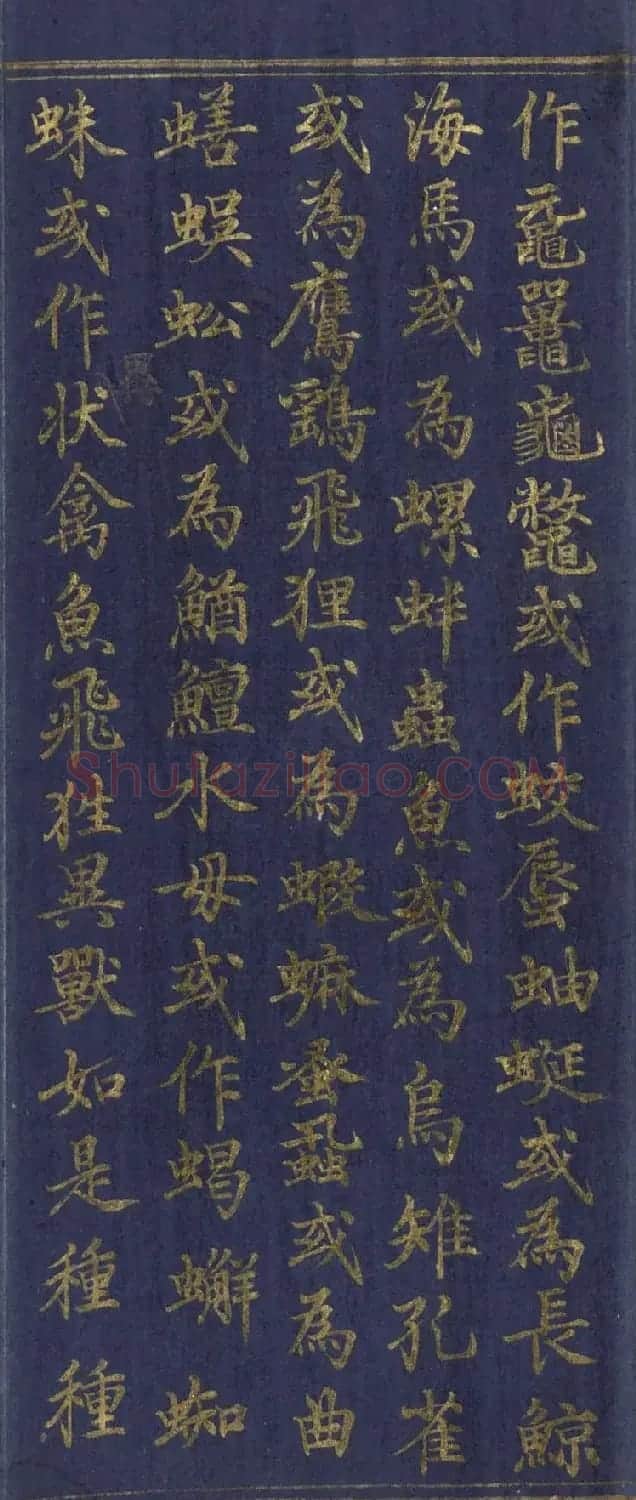 作黿鼉龜鼈或作蛟蜃蚰蜒或為長鯨
海馬或為螺蚌蟲魚或為烏雉孔雀
或為鷹鷂飛狸或為蝦䗫蚤蝨或為曲
蟮蜈蚣或為鰌鱣水母或作蝎蠏蜘
蛛或作状禽魚飛狌異獸如是種種
Shufaziliao.COM